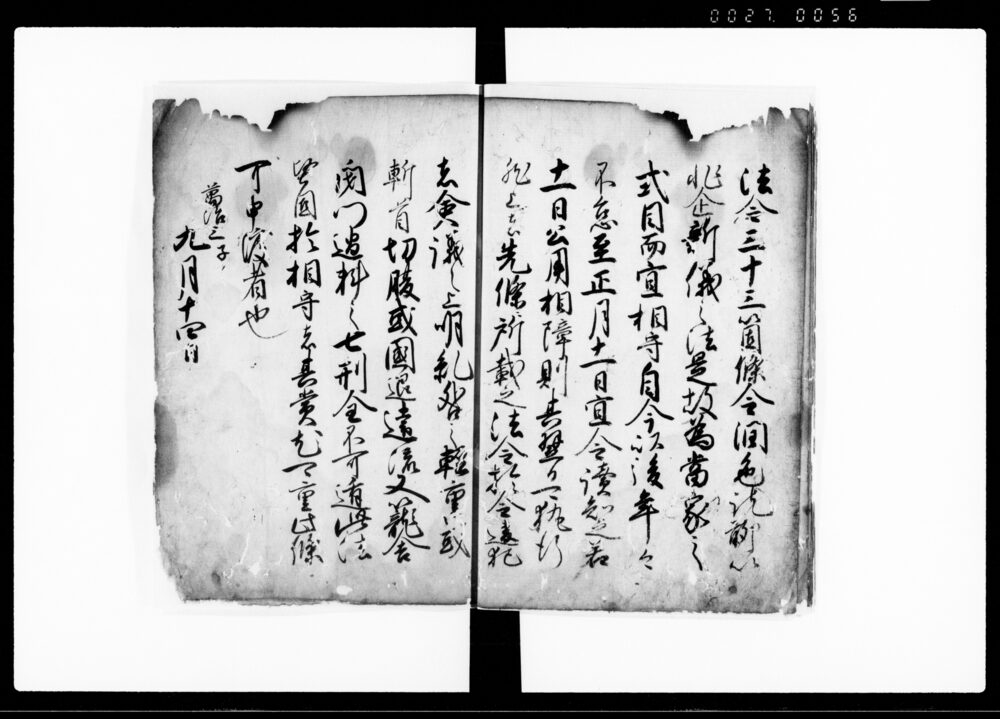 0027.0056
法令三十三箇條令潤色訖聊以
非企新儀之法是故為當家之
式目而宜相守自今以後年々
不怠至正月十一日宜令讀知之若
十一日公用相障則其翌日可執行
然上者先條所載之法令於令違犯
者僉議之上明糺咎之輕重或
斬首切腹或國退遠流又籠舎
閉門過料之七刑全不可遁此法
堅固於相守者其賞尤可重此條
可申渡者也
萬治三子
九月十四日